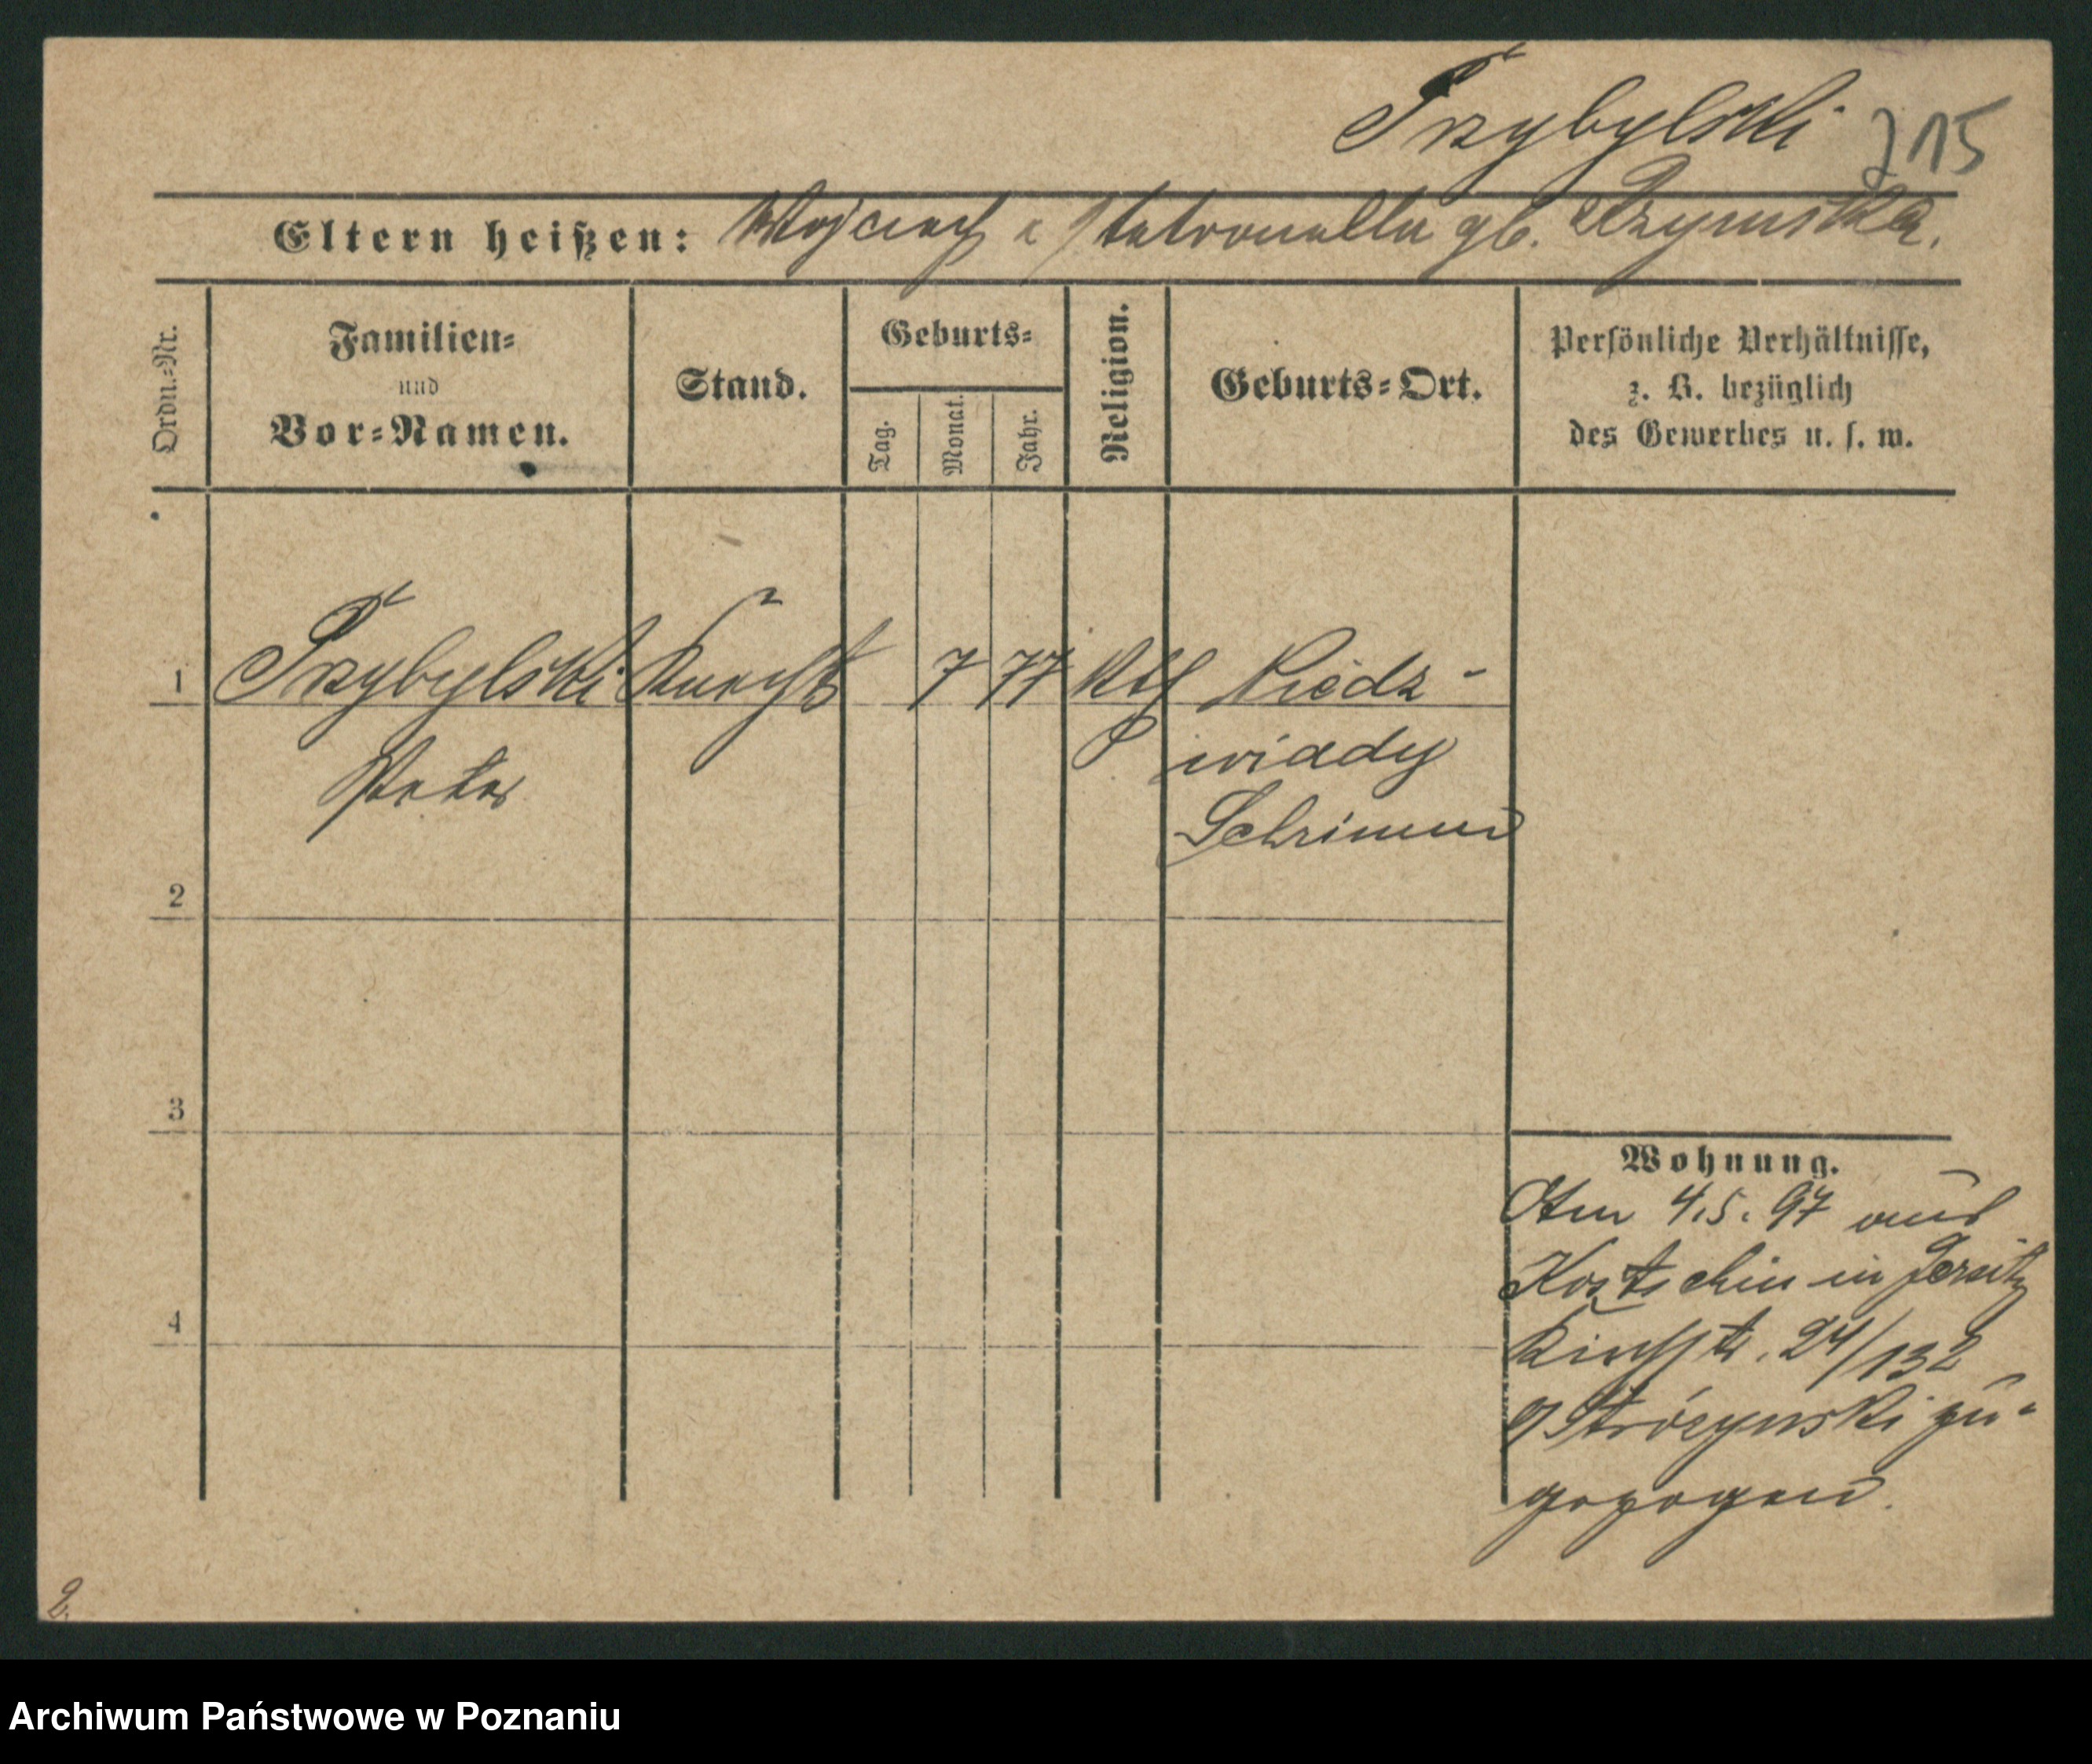 Przybylski
215
Eltern heißen: Wojciech u Petronella gb.
Ordn.-Nr.
Familien-
und
Vor-Namen.
Stand.
Geburts-
Tag.
Monat.
Jahr.
Religion.
Geburts-Ort.
Persönliche Verhältnisse,
z. B. bezüglich
des Gewerbes u. s. w.
1 Przybylski Knecht 7 77 Kth Niedz-
Peter wiady
Schrimm
2
3
4
Wohnung.
Am 4.5.97 aus
Kostschin in Jersitz
Kirchstr. 24/132
Strózynski zu-
gezogen.
2.
Archiwum Państwowe w Poznaniu